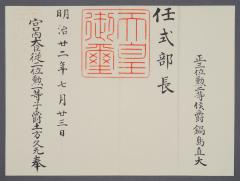 正三位勲二等侯爵鍋島直大
任式部長
天皇御璽
明治廿二年七月廿三日
宮内大臣従二位勲一等子爵土方久元奉